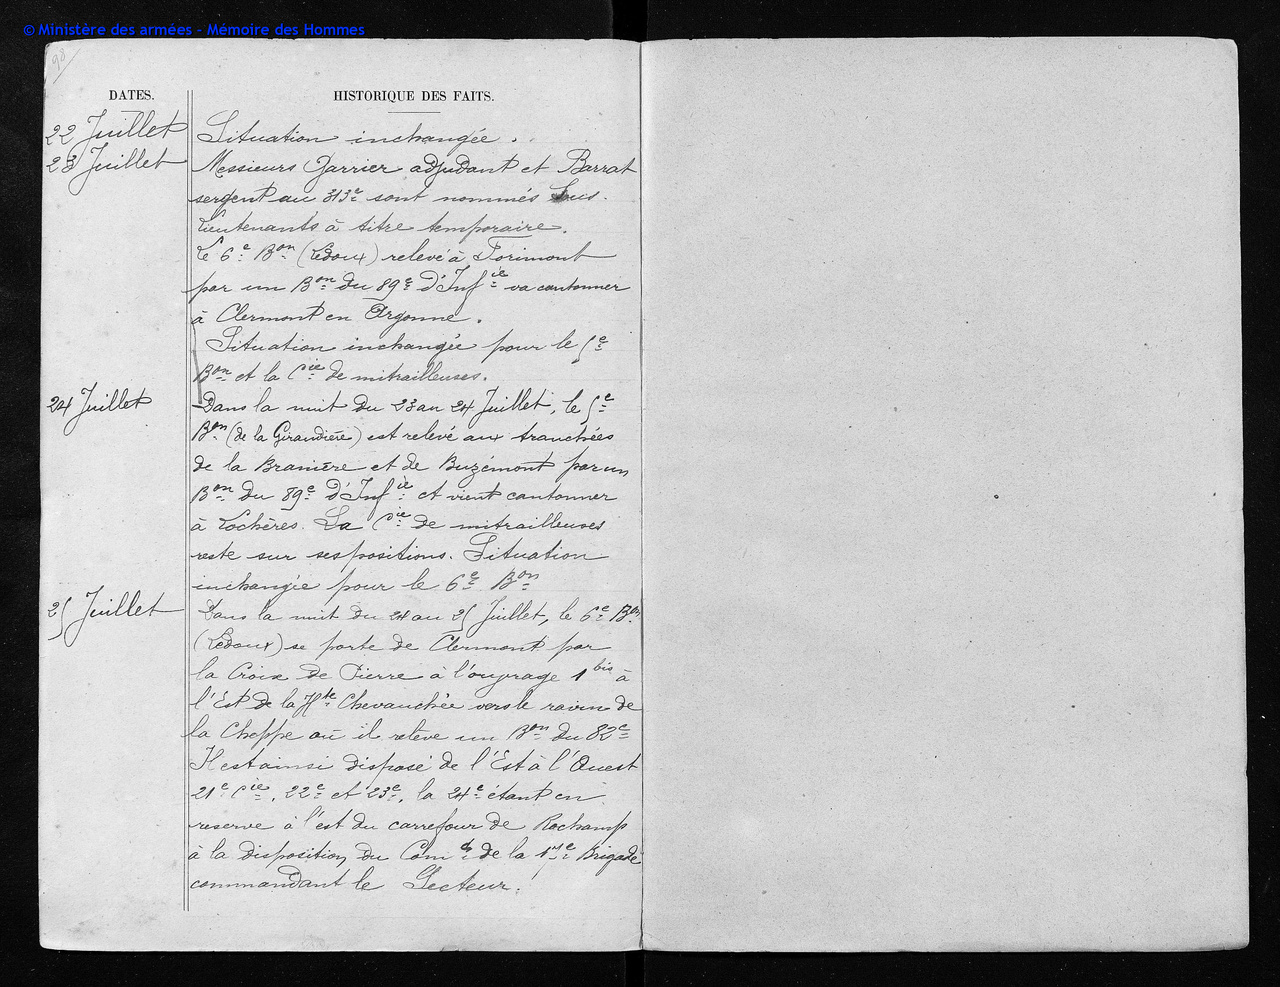 © Ministère des armées - Mémoire des Hommes
98
DATES. HISTORIQUE DES FAITS.
22 Juillet Situation inchangée.
23 Juillet Messieurs Garrier adjudant et Barrat
sergent au 313e sont nommés Sous-
lieutenants à titre temporaire.
Le 6e Bon (Ledoux) relevé à Forimont
par un Bon du 89e d'Infie va cantonner
à Clermont en Argonne.
Situation inchangée pour le 5e
Bon et la Cie de mitrailleuses.
24 Juillet Dans la nuit du 23 au 24 Juillet, le 5e
Bon (de la Giraudière) est relevé aux tranchées
de la Branière et de Buzémont par un
Bon du 89e d'Infie et vient cantonner
à Lochères. La Cie de mitrailleuses
reste sur ses positions. Situation
inchangée pour le 6e Bon
25 Juillet Dans la nuit du 24 au 25 Juillet, le 6e Bon
(Ledoux) se porte de Clermont par
la Croix de Pierre à l'ouvrage 1 bis à
l'Est de la Hte Chevauchée vers le ravin de
la Cheppe où il relève un Bon du 82e
Il est ainsi disposé de l'Est à l'Ouest
21e Cie, 22e et 23e, la 24e étant en
reserve à l'est du carrefour de Rochamp
à la disposition du Comdt de la Brigade
commandant le Secteur.